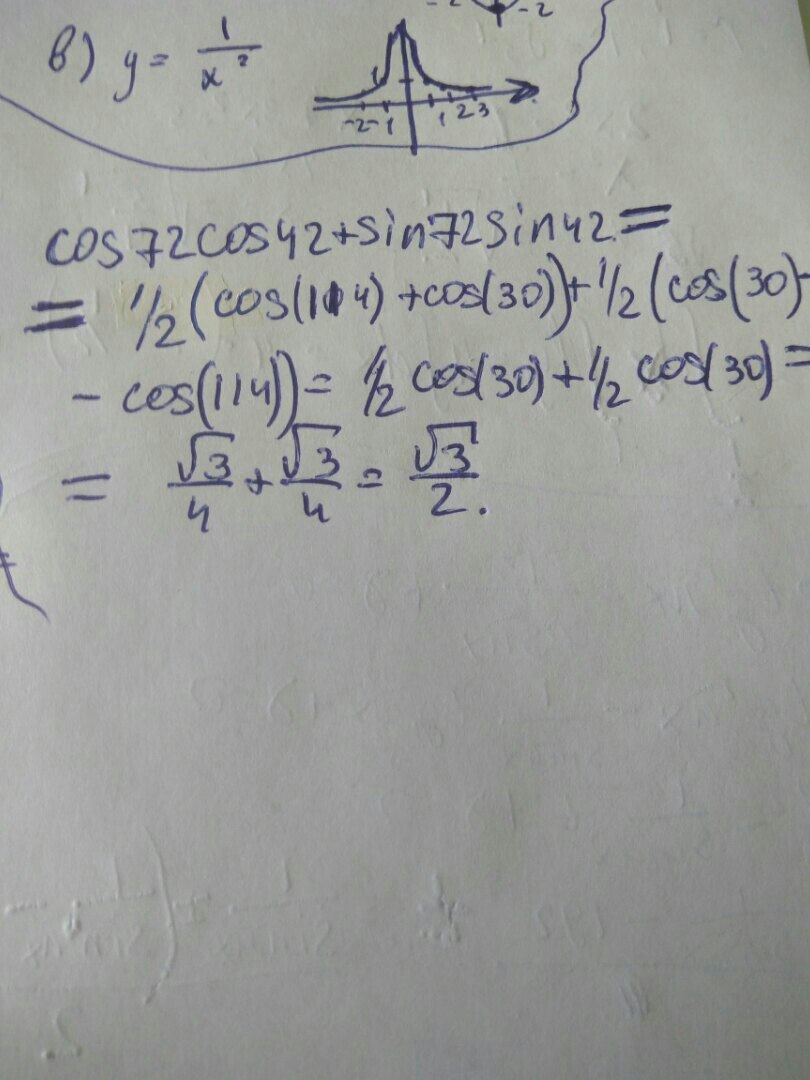 -2 -2
в) y = 1/x²
1
-2 -1 1 2 3
cos72cos42+sin72sin42=
= 1/2(cos(114)+cos(30))+1/2(cos(30)-
- cos(114))= 1/2 cos(30)+1/2 cos(30)=
= √3/4 + √3/4 = √3/2.